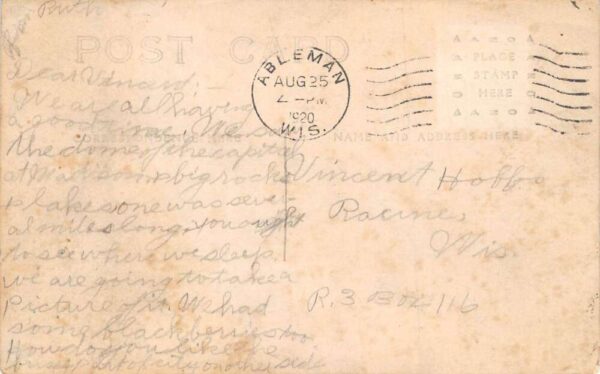 From Ruth
POST CARD
ABLEMAN
AUG 25
PM
1920
WIS.
AZOA
PLACE
STAMP
HERE
CORRESPONDENCE HERE
NAME AND ADDRESS HERE
Dear Vincent:
We are all having
a good time. We saw
the dome of the capital
at Madison big rocks
lakes one was sever-
al miles long. You ought
to see where we sleep
we are going to take a
picture of it. We had
some blackberries too
How do you like the
part of city on other side
Vincent Hobbs
Racine,
Wis.
R. 3 Box 116